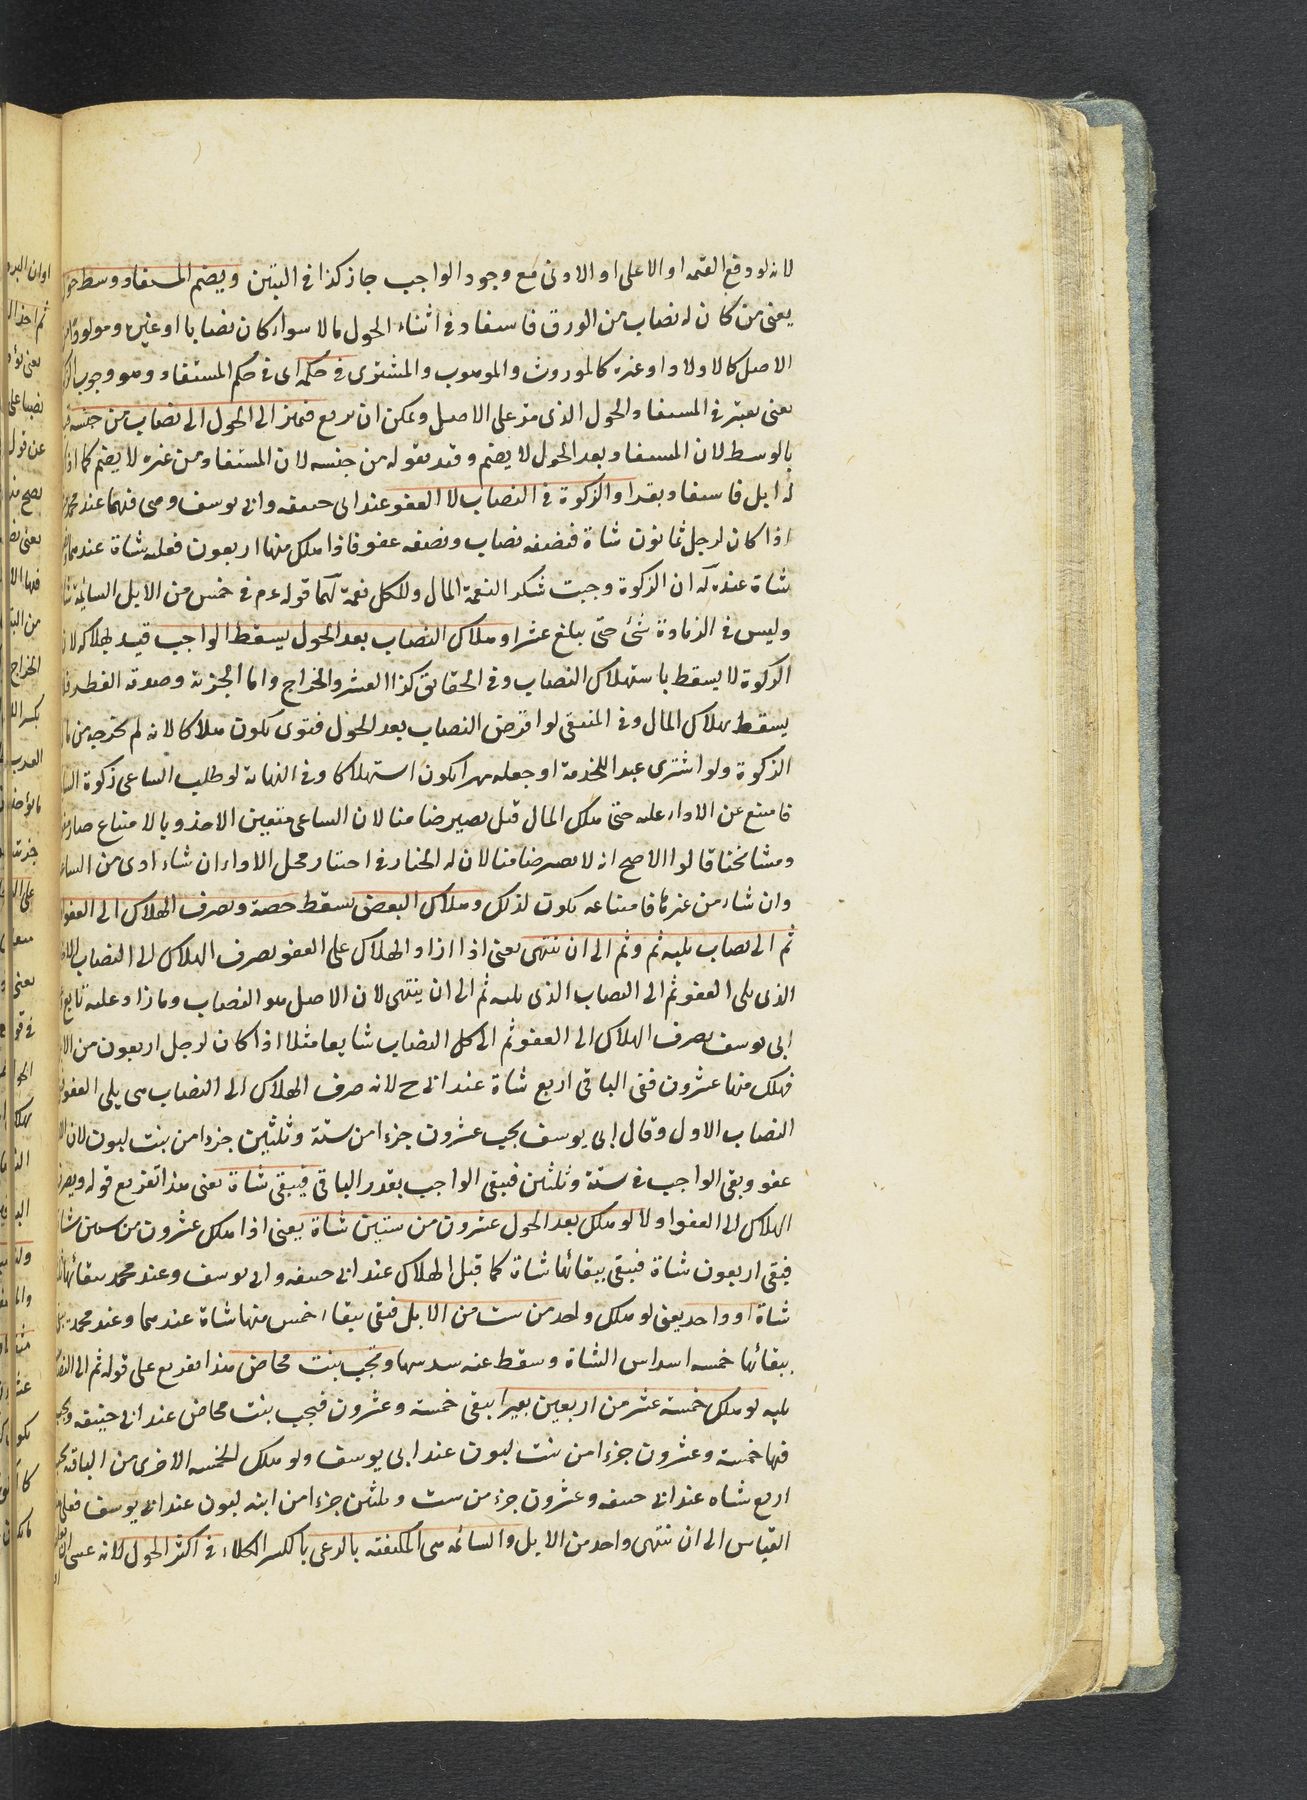 لانه لو دفع القيمة او الاعلى او الادنى مع وجود الواجب جاز كذا فى التبيين ويضم المستفاد وسط
يعنى من كان له نصاب من الورق فاستفاد فى اثناء الحول مالا سواء كان نصابا او غيره وهو لو
الاصل كالاولاد او غيره كالموروث والموهوب والمشترى فى حكمه اى فى حكم المستفاد وهو وجوب
يعنى يعتبر فى المستفاد الحول الذى مر على الاصل ويمكن ان يرجع ضميره الى الحول الى نصاب من جنسه
بالوسط لان المستفاد بعد الحول لا يضم وقيد بقوله من جنسه لان المستفاد من غيره لا يضم كما اذا
له ابل فاستفاد بقرا والزكوة فى النصاب لا العفو عند ابى حنيفه وابى يوسف وهى فيهما عند محمد
اذا كان لرجل ثمانون شاة فنصفه نصاب ونصفه عفو فاذا هلك منها اربعون فعليه شاة عندهما
شاة عنده له ان الزكوة وجبت شكر النعمة المال وللكل نعمة لهما قوله عم فى خمس من الابل السائمة
وليس فى الزيادة شئ حتى يبلغ عشرا وهلاك النصاب بعد الحول يسقط الواجب قيد بهلاكه لان
الزكوة لا يسقط باستهلاك النصاب وفى الحقايق كذا العشر والخراج واما الجزية وصدقة الفطر
يسقط بهلاك المال وفى المنتقى لو اقرض النصاب بعد الحول فتوى يكون هلاكا لانه لم يخرجه من
الزكوة ولو اشترى عبدا للخدمة او جعله مهرا يكون استهلاكا وفى النهاية لو طلب الساعى زكوة
فامتنع عن الاداء عليه حتى هلك المال قيل يصير ضامنا لان الساعى متعين الاخذ وبالامتناع صار
ومشايخنا قالوا الاصح انه لا يصير ضامنا لان له الخيار فى اختيار محل الاداء ان شاء ادى من
وان شاء من غيرها فامتناعه يكون لذلك وهلاك البعض يسقط حصته ويصرف الهلاك الى العفو
ثم الى نصاب يليه ثم وثم الى ان ينتهى يعنى اذا زاد الهلاك على العفو يصرف الهلاك الى النصاب
الذى يلى العفو ثم الى النصاب الذى يليه ثم الى ان ينتهى لان الاصل هو النصاب وما زاد عليه تابع
ابى يوسف يصرف الهلاك الى العفو ثم الى كل النصاب شايعا مثلا اذا كان لرجل اربعون من
فهلك منها عشرون ففى الباقى اربع شاة عند ابى ح لانه صرف الهلاك الى النصاب هى يلى العفو
النصاب الاول وقال ابى يوسف يجب عشرون جزءا من ستة وثلثين جزءا من بنت لبون لان
عفو وبقى الواجب فى ستة وثلثين فيبقى الواجب بقدر الباقى فيبقى شاة يعنى هذا تفريع قوله ويصرف
الهلاك الى العفو اولا لو هلك بعد الحول عشرون من ستين شاة يعنى اذا هلك عشرون من ستين
فبقى اربعون شاة فيبقى ببقائها شاة كما قبل الهلاك عند ابى حنيفه وابى يوسف وعند محمد ببقائها
شاة او واحد يعنى لو هلك واحد من ست من الابل فبقى ببقاء خمس منها شاة عندهما وعند محمد
ببقائها خمسه اسداس الشاة وسقط عنه سدسها وتجب بنت مخاض هذا تفريع على قوله ثم الى
يليه لو هلك خمسة عشر من اربعين بعيرا يبقى خمسة وعشرون فيجب بنت مخاض عند ابى حنيفه
فيها خمسة وعشرون جزءا من بنت لبون عند ابى يوسف ولو هلك الخمسه الاخرى من الباقية
اربع شاه عند ابى حنيفه وعشرون جزء من ست وثلثين جزءا من ابنة لبون عند ابى يوسف فعلى
القياس الى ان ينتهى واحد من الابل والسائمه هى المكتفية بالرعى بالكسر الكلاء فى اكثر الحول لانه عسى